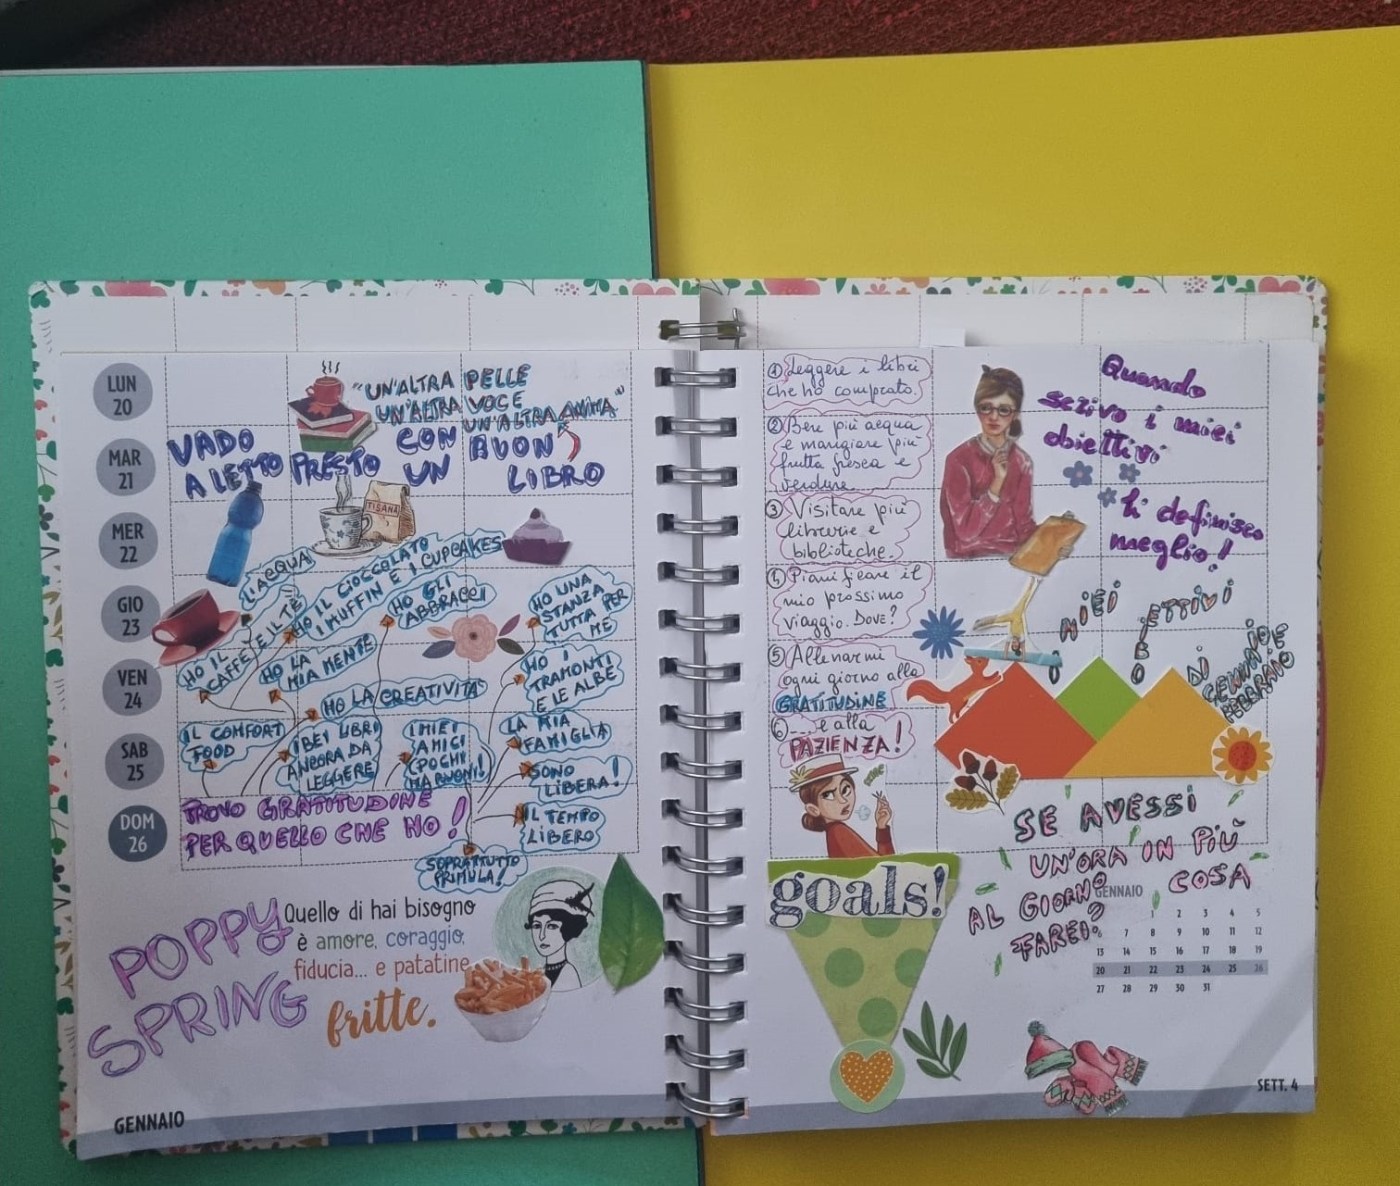 LUN
20
MAR
21
MER
22
GIO
23
VEN
24
SAB
25
DOM
26
"UN'ALTRA PELLE
UN'ALTRA VOCE
UN'ALTRA ANIMA"
VADO
A LETTO PRESTO
CON
UN
BUON
LIBRO
TISANA
L'ACQUA
HO IL CIOCCOLATO
I MUFFIN E I CUPCAKES
HO IL
CAFFÈ E IL TÈ
HO GLI
ABBRACCI
HO UNA
STANZA
TUTTA PER
ME
HO LA
MIA MENTE
HO I
TRAMONTI
E LE ALBE
HO LA CREATIVITÀ
IL COMFORT
FOOD
I BEI LIBRI
ANCORA DA
LEGGERE
I MIEI
AMICI
(POCHI
MA BUONI!
LA MIA
FAMIGLIA
SONO
LIBERA!
IL TEMPO
LIBERO
SOPRATTUTTO
PRIMULA!
TROVO GRATITUDINE
PER QUELLO CHE HO!
POPPY
SPRING
Quello di hai bisogno
è amore, coraggio,
fiducia... e patatine
fritte.
GENNAIO
① Leggere i libri
che ho comprato.
② Bere più acqua
e mangiare più
frutta fresca e
verdure.
③ Visitare più
librerie e
biblioteche.
④ Pianificare il
mio prossimo
viaggio. Dove?
⑤ Allenarmi
ogni giorno alla
GRATITUDINE
⑥ ... e alla
PAZIENZA!
Quando
scrivo i miei
obiettivi
li definisco
meglio!
I MIEI
OBIETTIVI
DI
GENNAIO E
FEBBRAIO
goals!
SE AVESSI
UN'ORA IN PIÙ
AL GIORNO COSA
FAREI?
GENNAIO
1 2 3 4 5
7 8 9 10 11 12
13 14 15 16 17 18 19
20 21 22 23 24 25 26
27 28 29 30 31
SETT. 4